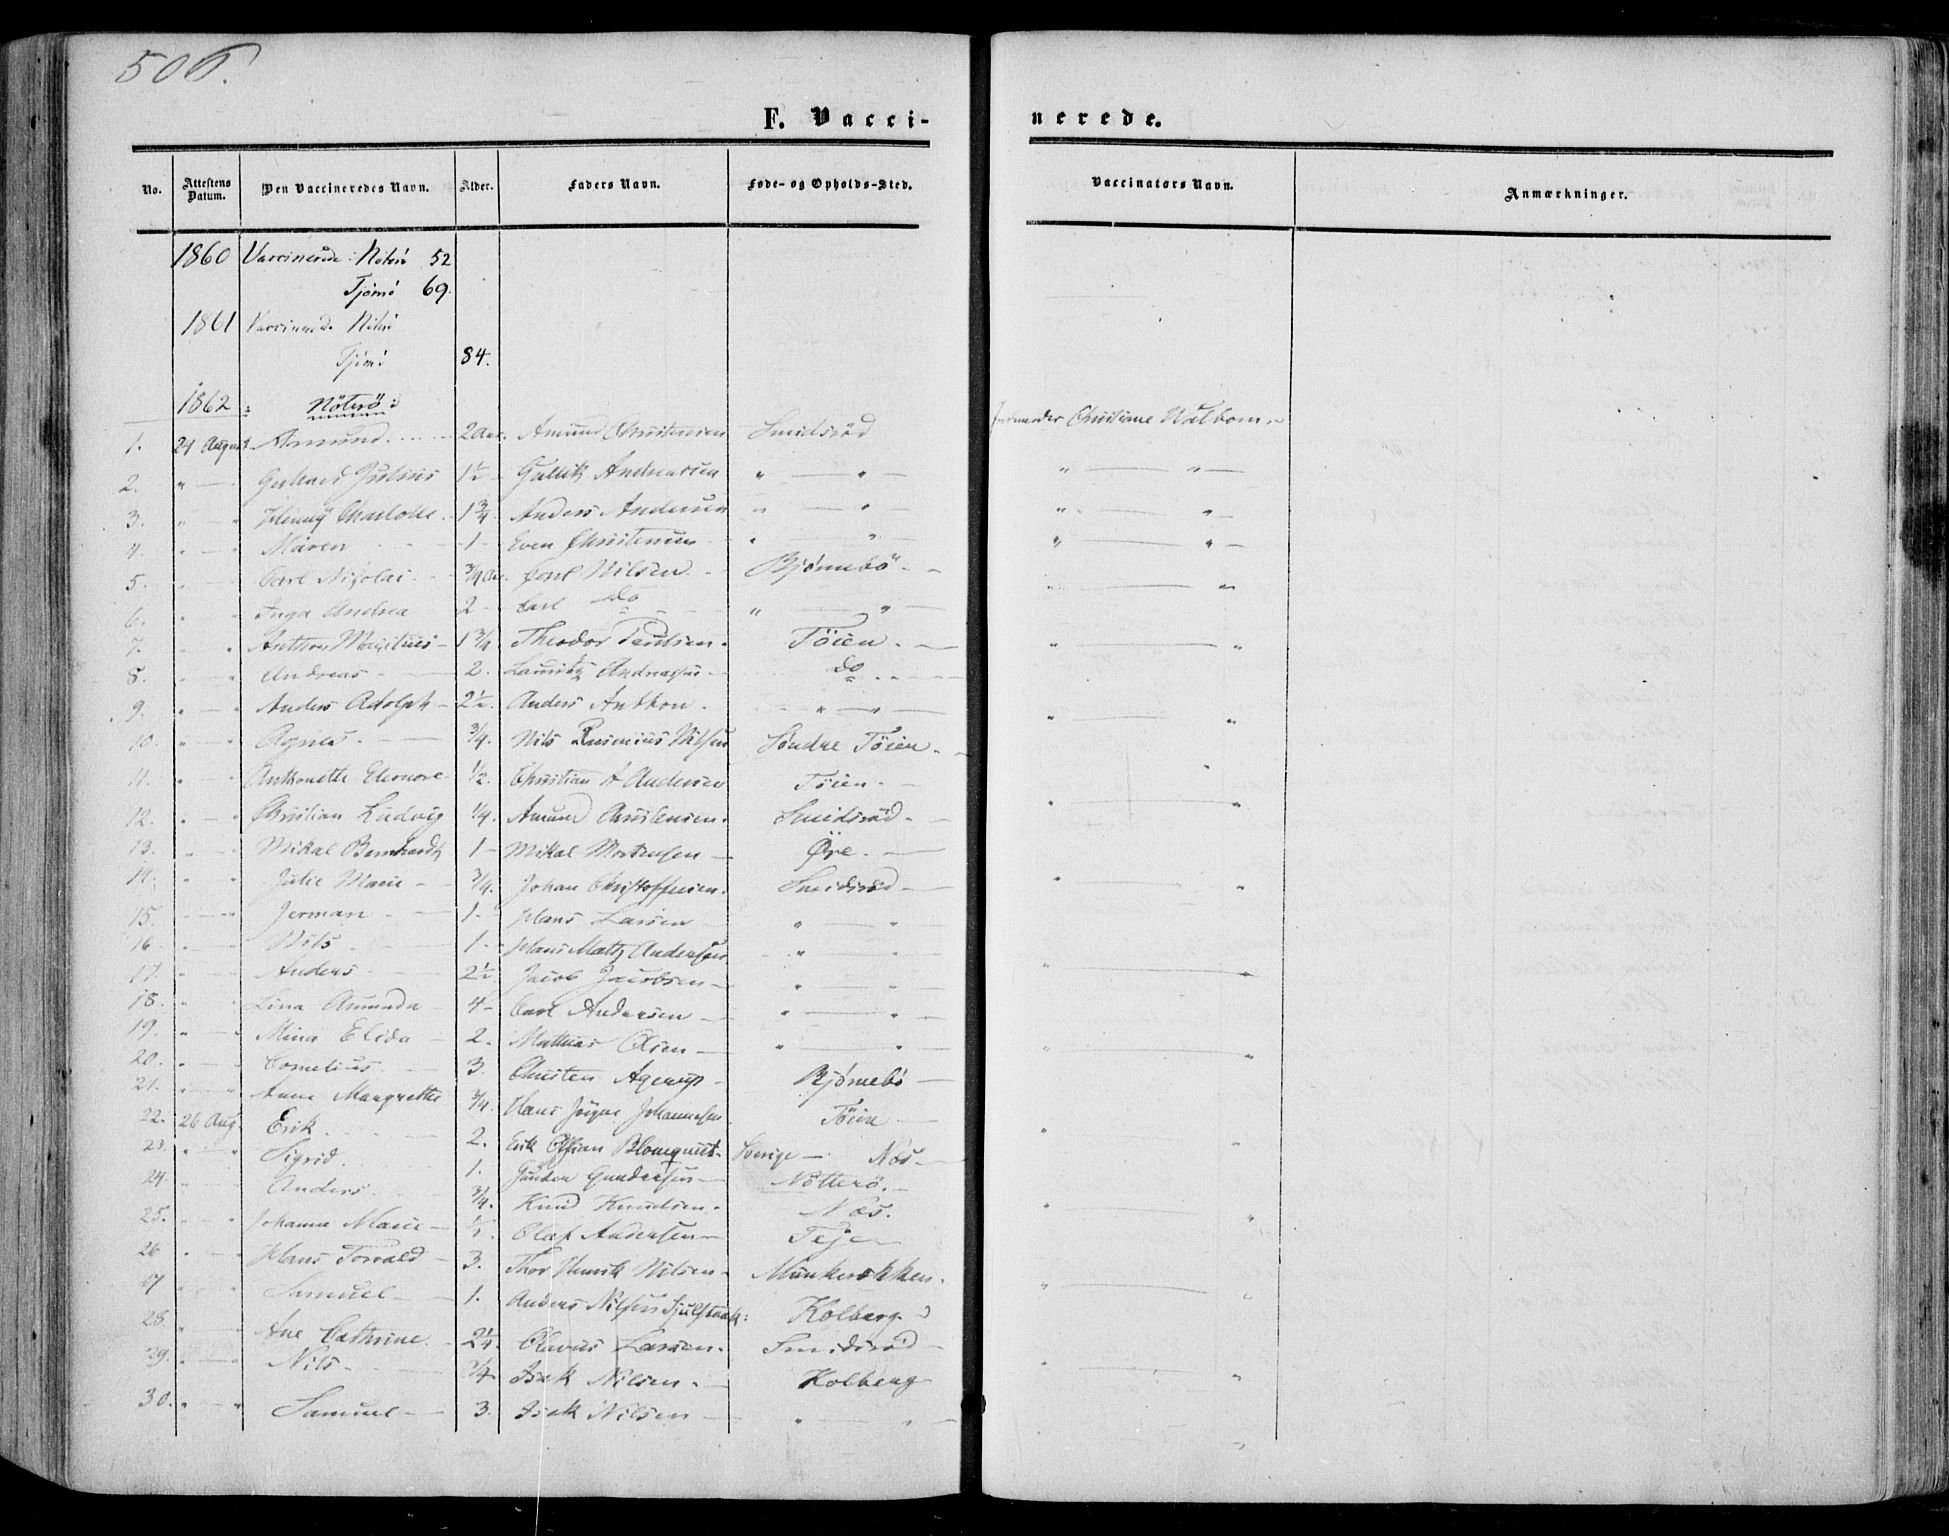 506.
F. Vacci-
nerede.
No. Attestens Datum. Den Vaccineredes Navn. Alder. Faders Navn. Føde- og Opholds-Sted. Vaccinators Navn. Anmærkninger.
1860 Vaccinerede: Nøterö 52
Tjømö 69.
1861 Vaccinerede Nöterö
Tjömö 84.
1862: Nöterö:
1. 24 August Amund 2 Aar. Amund Christensen Smidsröd Christiane Walbom
2. " — Gerhard Julius 1½ Gullik Andreassen " — "
3. " — " Henny Charlotte 1¾ Anders Andersen " — "
4. " — " Maren 1 Even Christensen " "
5. " — " Carl Nicolai ¾ Aar. Carl Nilsen Bjørnebö
6. " " Inga Andrea 2 Carl do " — "
7. " " Anthon 1¾ Theodor Paulsen. Töien
8. " " Andreas 2. Lauritz Andreasen do
9. " — " Anders Adolph 2½. Anders Anthon. " — "
10. " — " Agnes ¾. Nils Nilsen Söndre Töien
11. " — " Anthonette Eleonore ½. Christian A Andersen Töien
12. " — " Christian Ludvig ¼. Amund Christensen. Smidsröd
13. " " Mikal Bernhardt 1 Mikal Mortensen Øre
14. " " Julie Marie ¾. Johan Christoffersen. Smidsröd
15. — " Jerman 1. Hans Larsen " "
16 " — " Nils 1 Hans Math Andersen " "
17. " — " Anders 2½. Jacob Jacobsen " "
18. " " Lina Amanda 4 Carl Andersen " — "
19. " — " Mina Elida 2. Mathias Olsen " "
20. " — " Cornelius 3. Christen Agerup Bjørnebö
21. " — " Anne Margrethe ¾. Hans Johannesen Töien
22. 26 Aug. Erik 2. Erik Blomquist Sverige — Nes
23. " — " Sigrid 1. Gundersen Nötterö.
24. " " Anders ¾. Knud Knudsen. Nes.
25. " — " Johanne Marie ½. Olaf Andersen Teje
26 " — " Hans Torvald 3. Thor Henrik Nilsen Munkerekken.
" " Samuel 1. Anders Nilsen Kolberg
28. " — " Ane Cathrine. 2¼ Olavus Larsen. Smidsröd
29. " — " Nils ¾ Isak Nilsen Kolberg
30. " — " Samuel 3. Isak Nilsen " — "